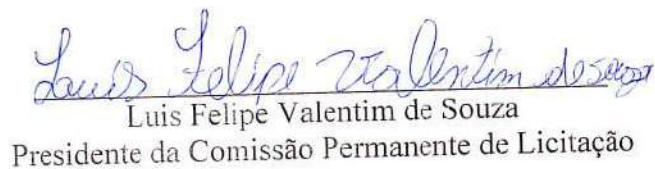 Luis Felipe Valentim de Souza
Luis Felipe Valentim de Souza
Presidente da Comissão Permanente de Licitação